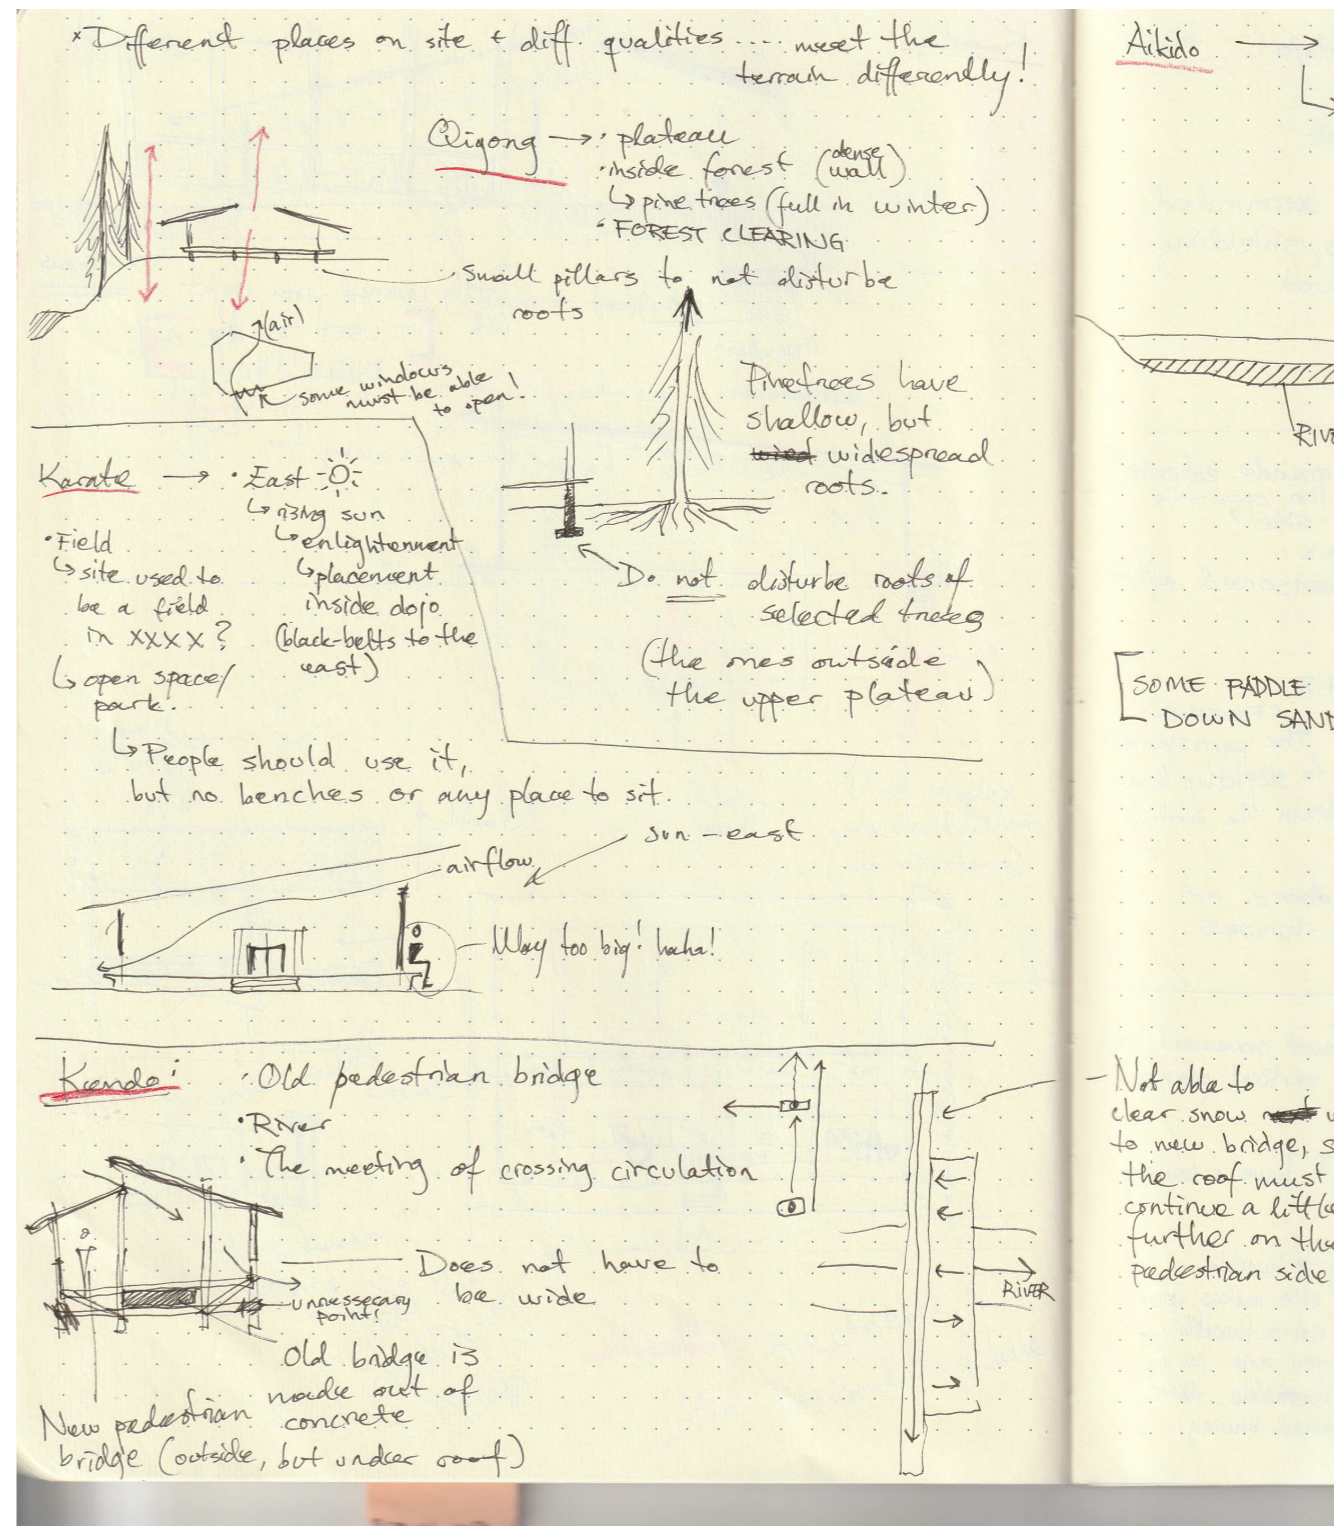 * Different places on site + diff. qualities .... meet the
terrain differently!
Qigong → • plateau
• inside forest (dense wall)
↳ pine trees (full in winter)
• FOREST CLEARING
small pillars to not disturbe
roots
(air)
some windows
must be able
to open!
Pinetrees have
shallow, but
wied widespread
roots.
Do not disturbe roots of
selected trees
(the ones outside
the upper plateau)
Karate → • East
↳ rising sun
↳ enlightenment
↳ placement
inside dojo
(black-belts to the
east)
• Field
↳ site used to
be a field
in xxxx?
↳ open space/
park.
↳ People should use it,
but no benches or any place to sit.
sun - east
airflow
Way too big! haha!
Kendo:
• Old pedestrian bridge
• River
• The meeting of crossing circulation
Does not have to
be wide
unnessecary
point!
Old bridge is
made out of
concrete
New pedestrian
bridge (outside, but under roof)
RIVER
Aikido →
↳
RIVE
[SOME PADDLE
DOWN SAND
- Not able to
clear snow
to new bridge, s
the roof must
continue a little
further on the
pedestrian side